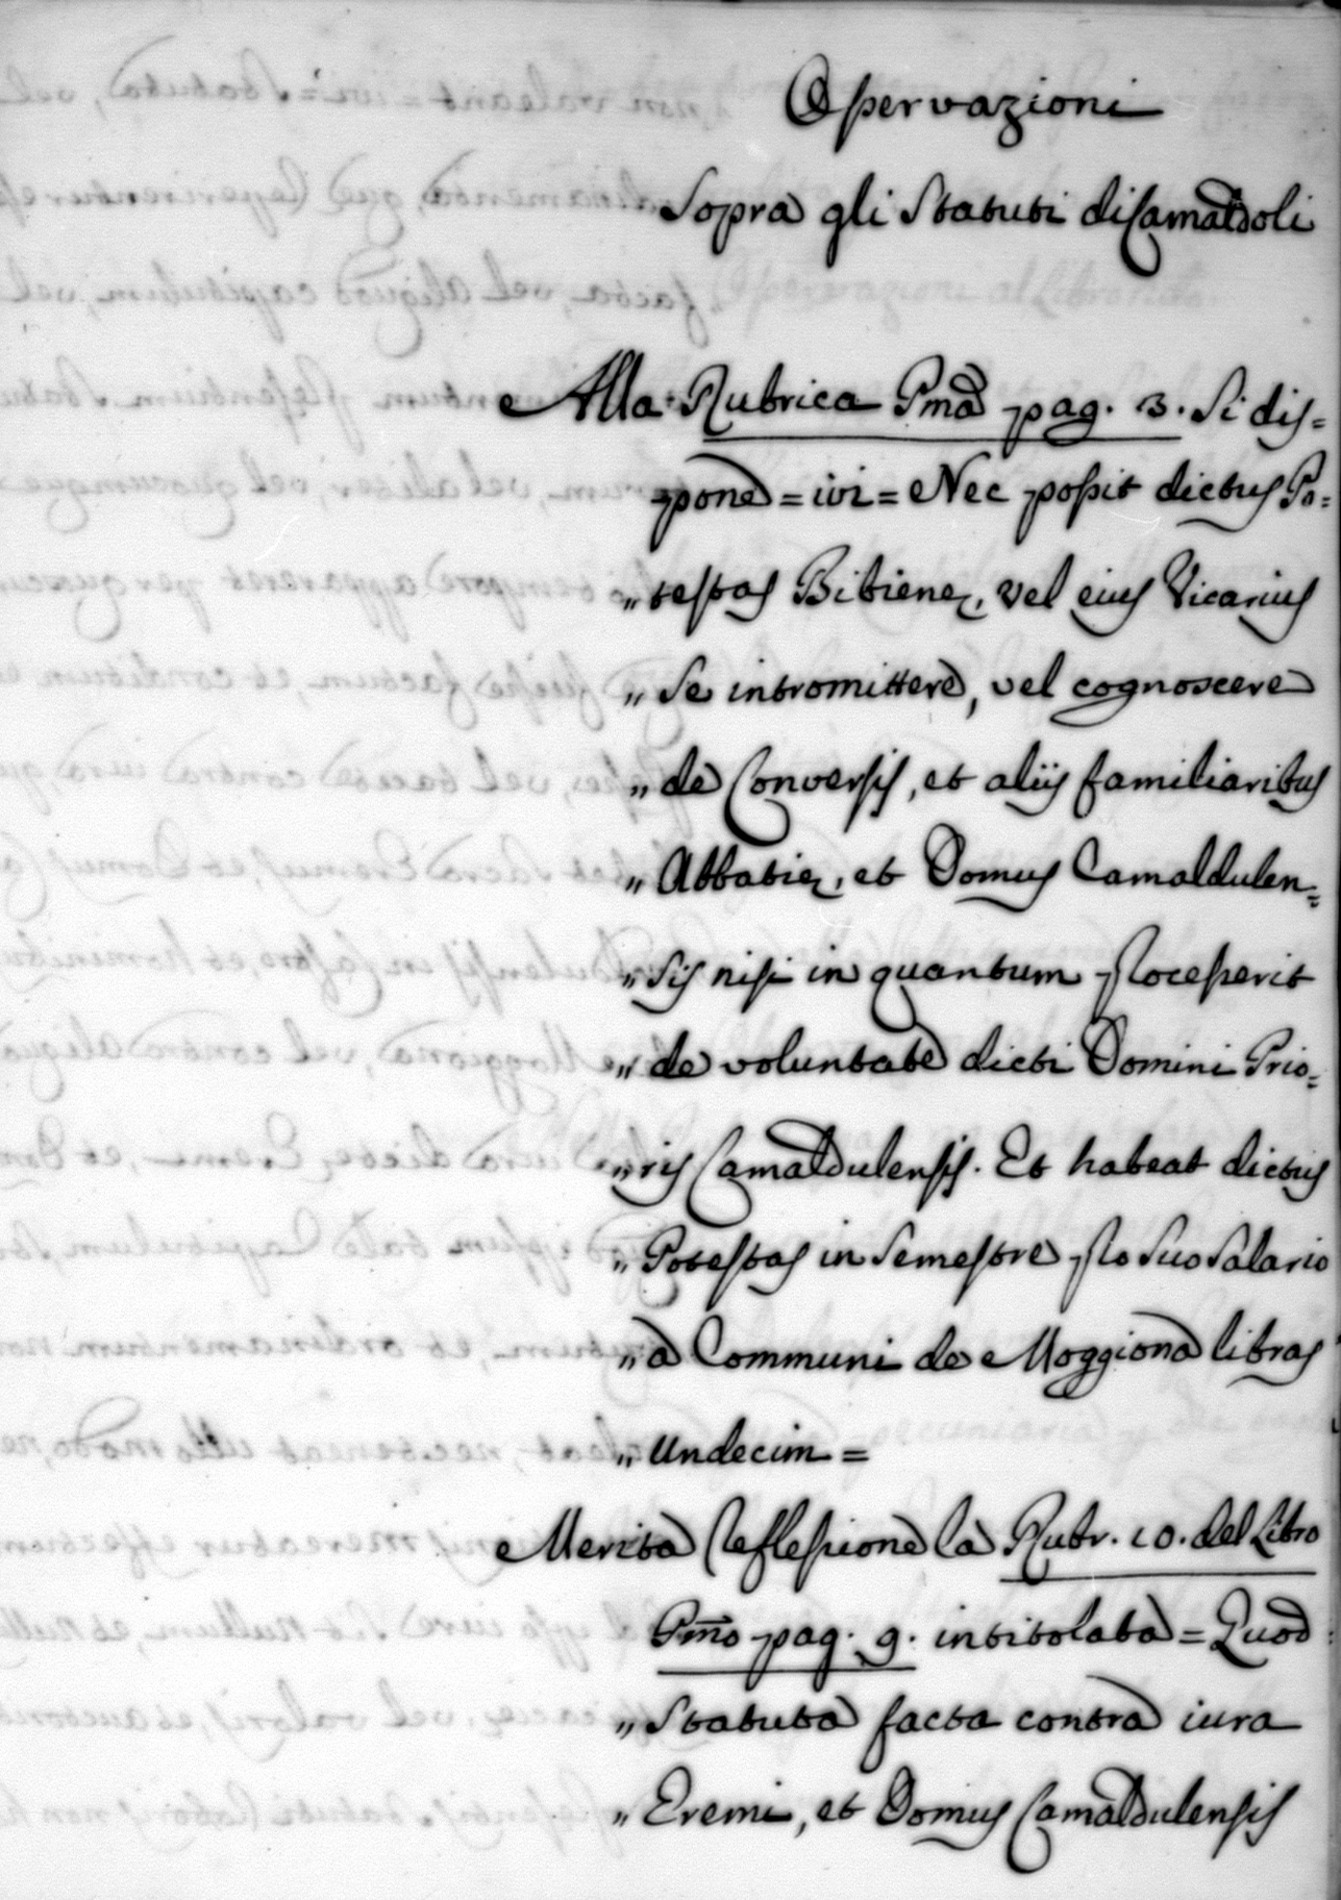 Osservazioni
Sopra gli Statuti di Camaldoli
Alla Rubrica Pma pag. 3. Si dis=
pone = ivi = Nec possit dictus Po=
„ testas Bibiene, vel eius Vicarius
„ Se intromittere, vel cognoscere
„ de Conversis, et aliis familiaribus
„ Abbatie, et Domus Camaldulen=
„ Sis nisi in quantum processerit
„ de voluntate dicti Domini Prio=
„ ris Camaldulensis. Et habeat dictus
„ Potestas in Semestre pro Suo Salario
„ a Communi de Moggiona libras
„ undecim =
Merita Reflessione la Rubr. 10. del Libro
Pmo pag. 9. intitolata = Quod
„ Statuta facta contra iura
„ Eremi, et Domus Camaldulensis